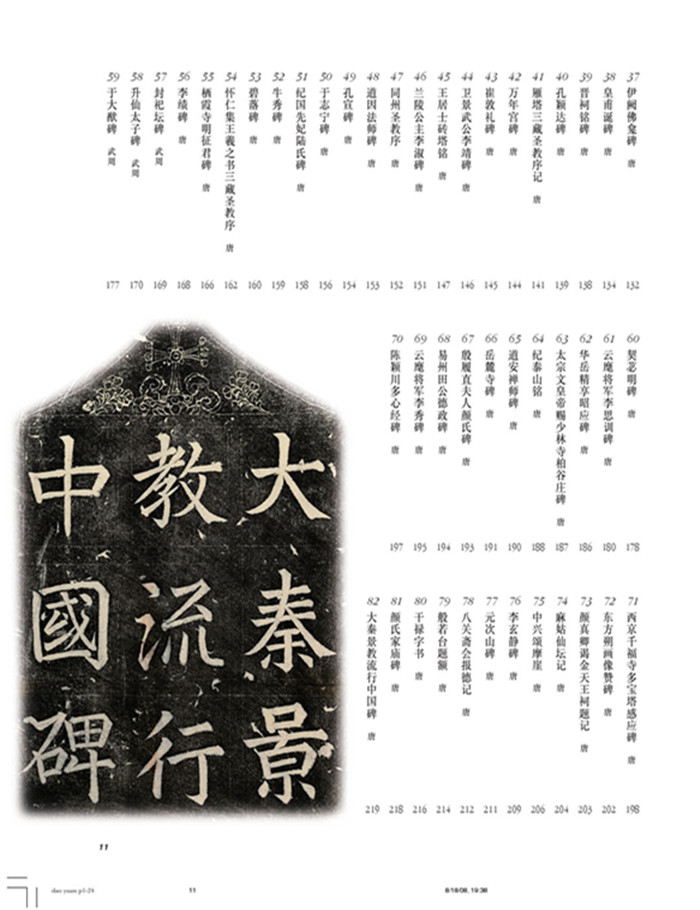 37 伊阙佛龛碑 唐 132
38 皇甫诞碑 唐 134
39 晋祠铭碑 唐 138
40 孔颖达碑 唐 139
41 雁塔三藏圣教序记 唐 141
42 万年宫碑 唐 144
43 崔敦礼碑 唐 145
44 卫景武公李靖碑 唐 146
45 王居士砖塔铭 唐 147
46 兰陵公主李淑碑 唐 151
47 同州圣教序 唐 152
48 道因法师碑 唐 153
49 孔宣碑 唐 154
50 于志宁碑 唐 156
51 纪国先妃陆氏碑 唐 158
52 牛秀碑 唐 159
53 碧落碑 唐 160
54 怀仁集王羲之书三藏圣教序 唐 162
55 栖霞寺明征君碑 唐 166
56 李绩碑 唐 168
57 封祀坛碑 武周 169
58 升仙太子碑 武周 170
59 于大猷碑 武周 177
60 契苾明碑 唐 178
61 云麾将军李思训碑 唐 180
62 华岳精享昭应碑 唐 186
63 太宗文皇帝赐少林寺柏谷庄碑 唐 187
64 纪泰山铭 唐 188
65 道安禅师碑 唐 190
66 岳麓寺碑 唐 191
67 殷履直夫人颜氏碑 唐 193
68 易州田公德政碑 唐 194
69 云麾将军李秀碑 唐 195
70 陈颖川多心经碑 唐 197
71 西京千福寺多宝塔感应碑 唐 198
72 东方朔画像赞碑 唐 202
73 颜真卿谒金天王祠题记 唐 203
74 麻姑仙坛记 唐 204
75 中兴颂摩崖 唐 206
76 李玄静碑 唐 209
77 元次山碑 唐 211
78 八关斋会报德记 唐 212
79 般若台题额 唐 214
80 干禄字书 唐 216
81 颜氏家庙碑 唐 218
82 大秦景教流行中国碑 唐 219
大秦景
教流行
中國碑
11
shu yuan p1-24
11
8/18/08, 19:38